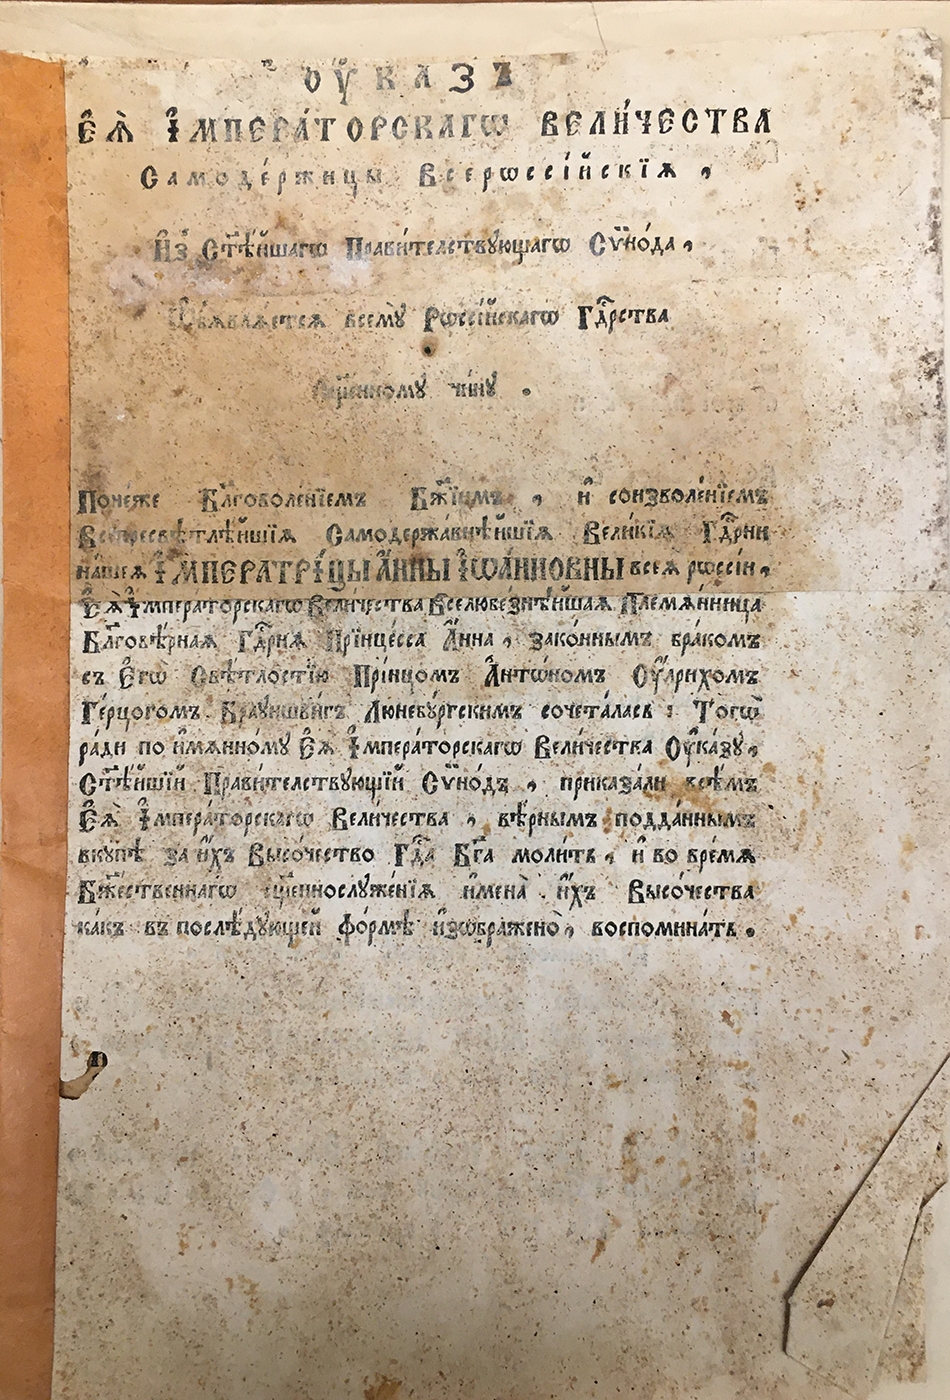 Оу҆ка́зъ
Є҆ѧ̀ І҆мпера́торскагѡ вели́чества
Самоде́ржицы Всерѡссі́йскїѧ ,
И҆з̾ Ст҃ѣ́йшагѡ Прави́телствꙋющагѡ Сѵ̈но́да ,
Ѡ҆б̾ѧвлѧ́етсѧ всемꙋ̀ Рѡссі́йскагѡ Гд҃рства
Сщ҃е́нномꙋ чи́нꙋ .
Поне́же Бл҃говоле́нїемъ Бж҃їимъ , и҆ соизволе́нїемъ
Всепресвѣтлѣ́йшїѧ Самодержа́внѣйшїѧ Вели́кїѧ Гд҃рни
на́шеѧ І҆МПЕРАТРІ́ЦЫ А҆́ННЫ І҆ѠА́ННОВНЫ всеѧ̀ рѡссі́и ,
Є҆ѧ̀ І҆мпера́торскагѡ Вели́чества Вселюбе́знѣйшаѧ Племѧ́нница
Бл҃говѣ́рнаѧ Гд҃рнѧ Прїнце́сса А҆́нна , зако́ннымъ бра́комъ
съ Є҆гѡ̀ Свѣ́тлостїю Прі́нцомъ А҆нтѡ́номъ Оу҆́лрихомъ
Ге́рцогомъ Бра́уншви́гъ Люнебꙋ́ргскимъ сочета́ласѧ : Тогѡ̀
ра́ди по и҆мѧ́нномꙋ Є҆ѧ̀ І҆мпера́торскагѡ Вели́чества Оу҆ка́зꙋ ,
Ст҃ѣ́йшїй Прави́телствꙋющїй Сѵ̈но́дъ , приказа́ли всѣ̑мъ
Є҆ѧ̀ І҆мпера́торскагѡ Вели́чества , вѣ̑рнымъ по́дданнымъ
вкꙋ́пѣ за и҆́хъ Высо́чество Гд҃а Бг҃а моли́ть , и҆ во вре́мѧ
Бж҃е́ственнагѡ сщ҃еннослꙋже́нїѧ и҆мена̀ и҆́хъ Высо́чества
ка́къ въ послѣ́дꙋющей фо́рмѣ и҆з̾ѡбражено̀ , воспомина́ть .